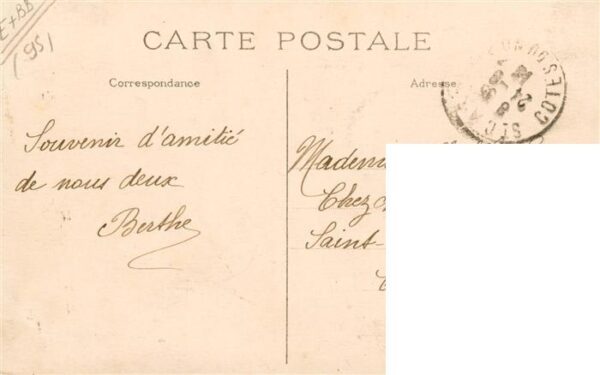 E+BB
(95)
CARTE POSTALE
Correspondance
Adresse
Souvenir d'amitié
de nous deux
Berthe
Chez
Saint-